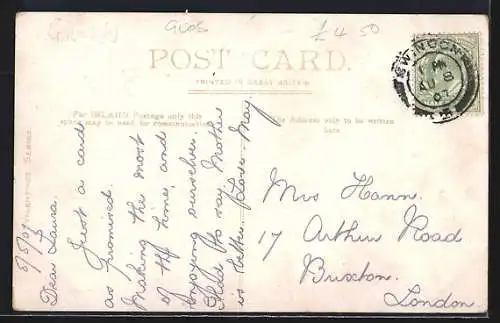 G1005
£4.50
POST CARD.
PRINTED IN GREAT BRITAIN
For INLAND Postage only this
space may be used for communication
The Address only to be written
here
VALENTINES SERIES
8/8/07
Dear Laura.
Just a card
as promised.
Making the most
of the time, and
enjoying ourselves.
Glad to say Mother
is better. Love. May
Mrs Hann.
17 Arthur Road
Brixton.
London.
AU 8
07